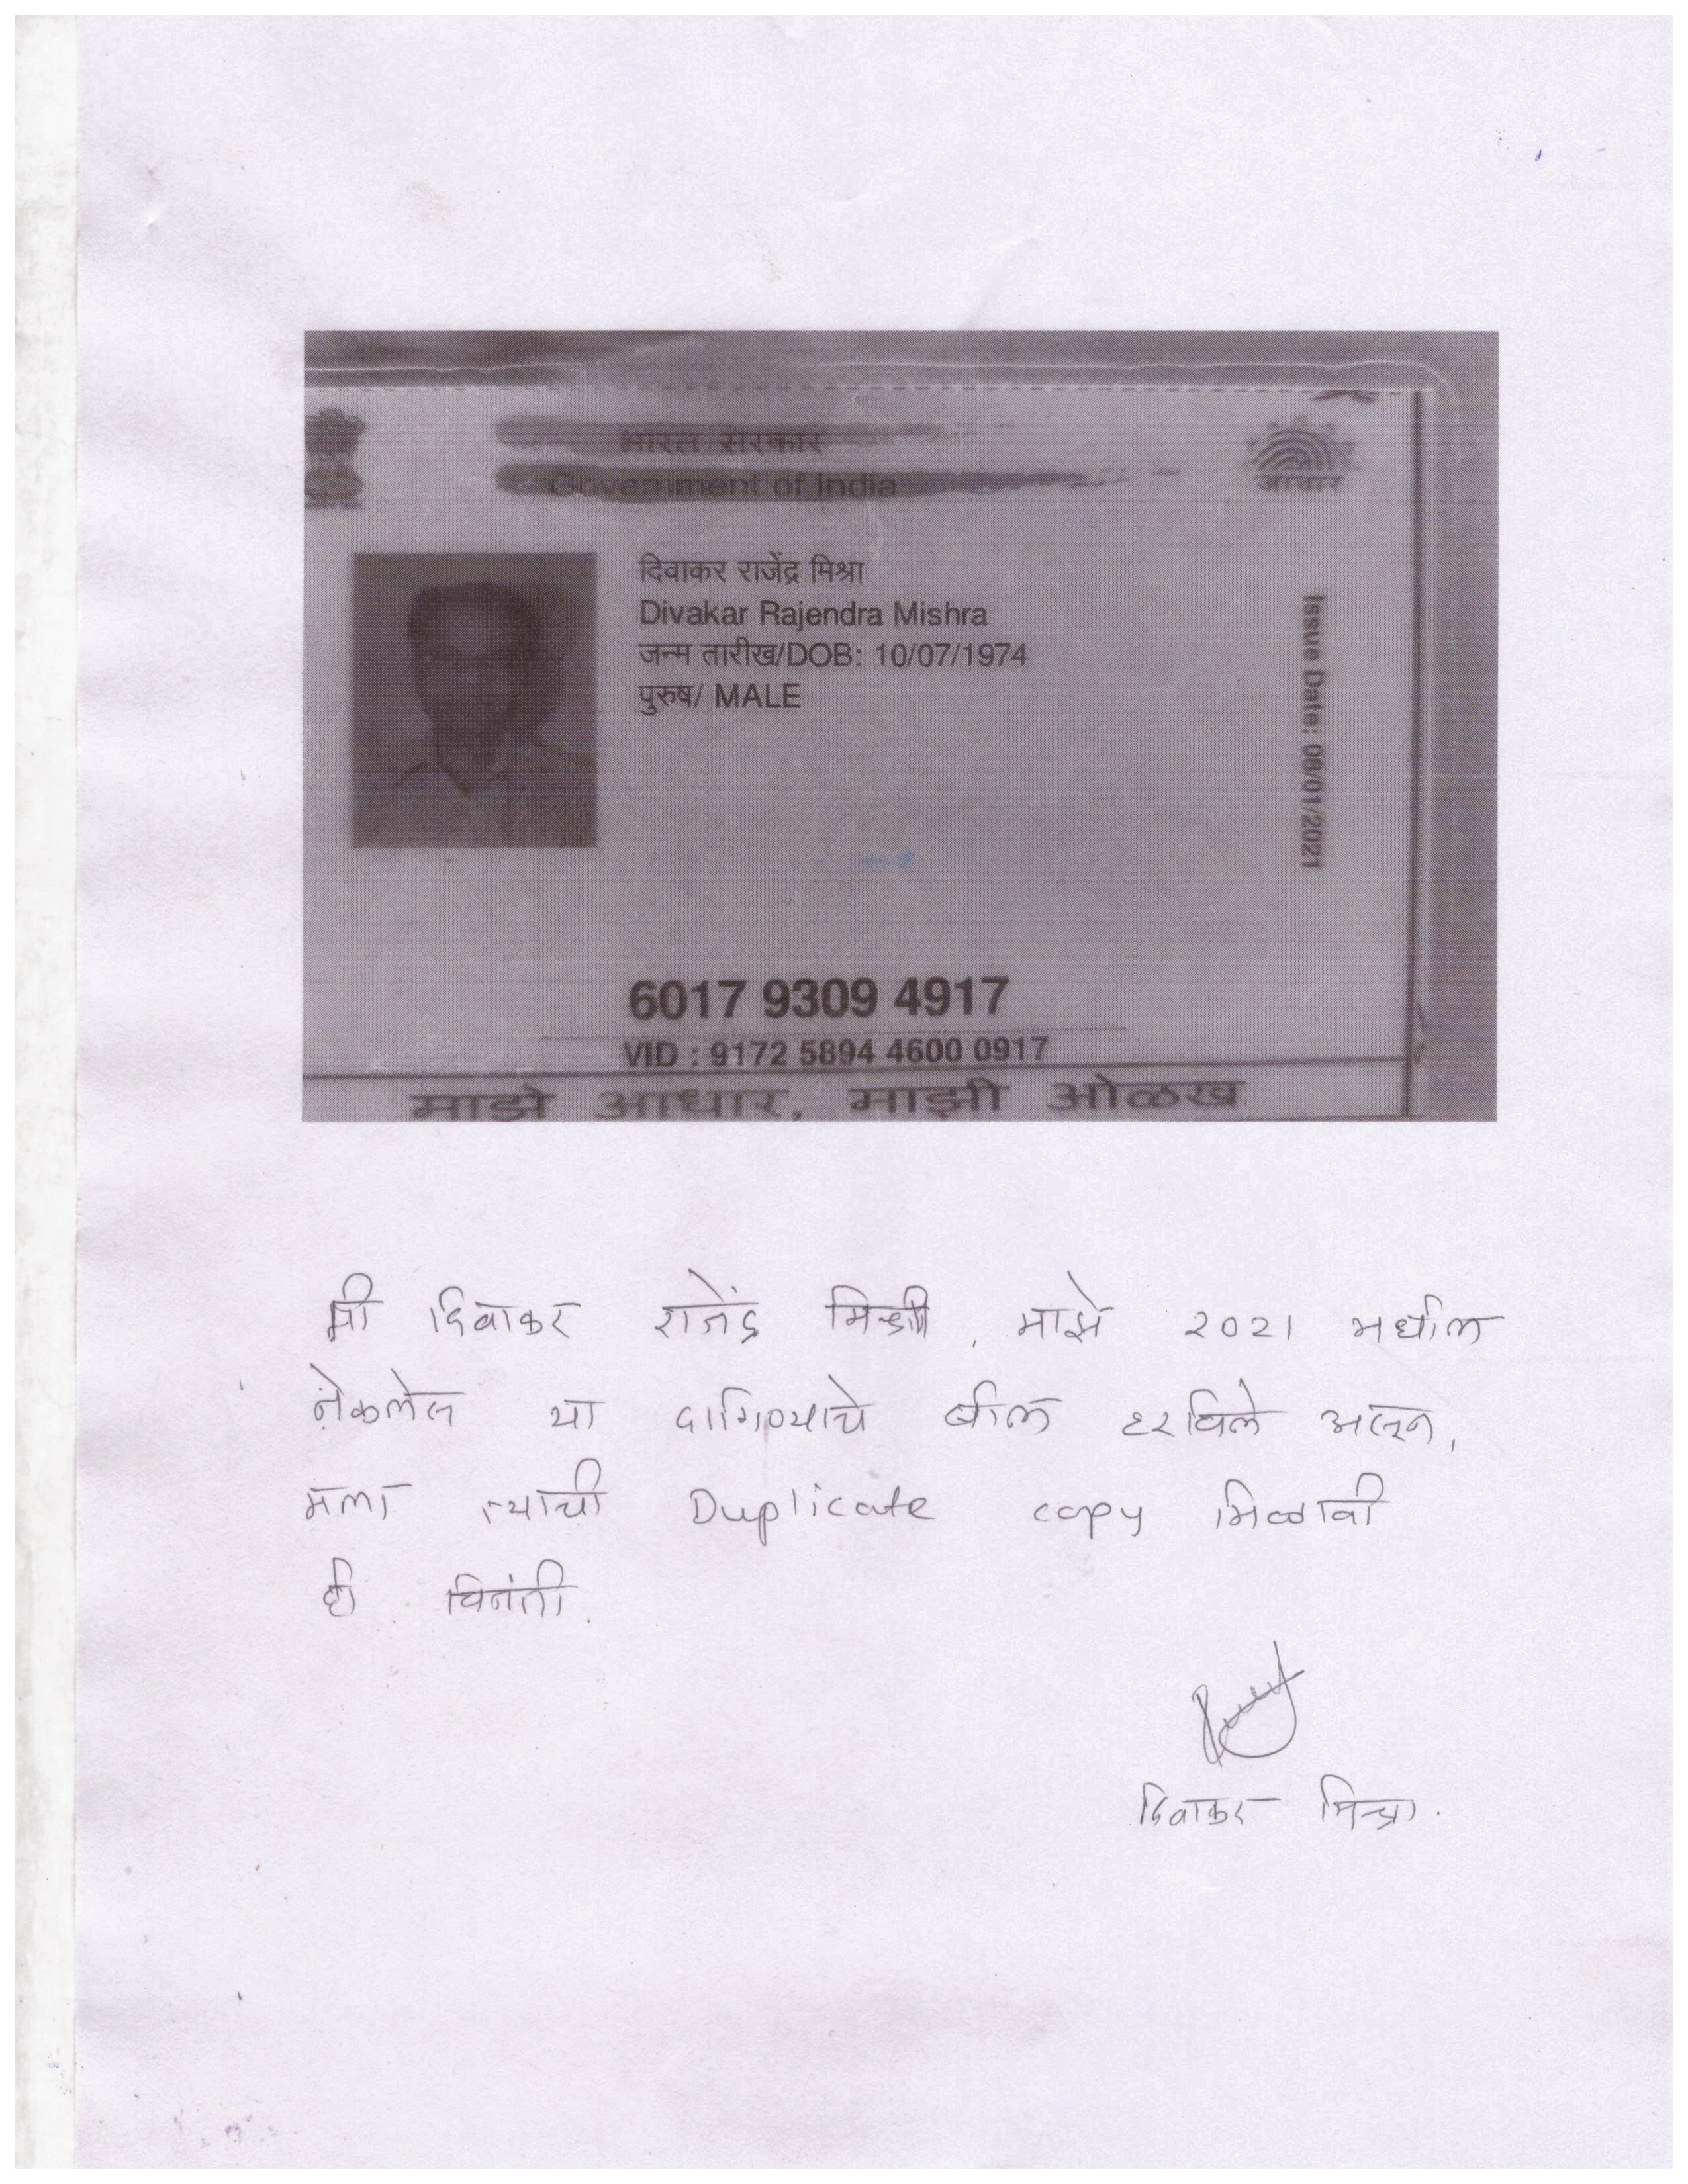 भारत सरकार
Government of India
आधार
दिवाकर राजेंद्र मिश्रा
Divakar Rajendra Mishra
जन्म तारीख/DOB: 10/07/1974
पुरुष/ MALE
Issue Date: 08/01/2021
6017 9309 4917
VID : 9172 5894 4600 0917
माझे आधार, माझी ओळख
मी दिवाकर राजेंद्र मिश्रा, माझे २०२१ मधील
नेकलेस या दागिण्याचे बील हरविले असून,
मला त्याची Duplicate copy मिळावी
ही विनंती.
दिवाकर मिश्रा.